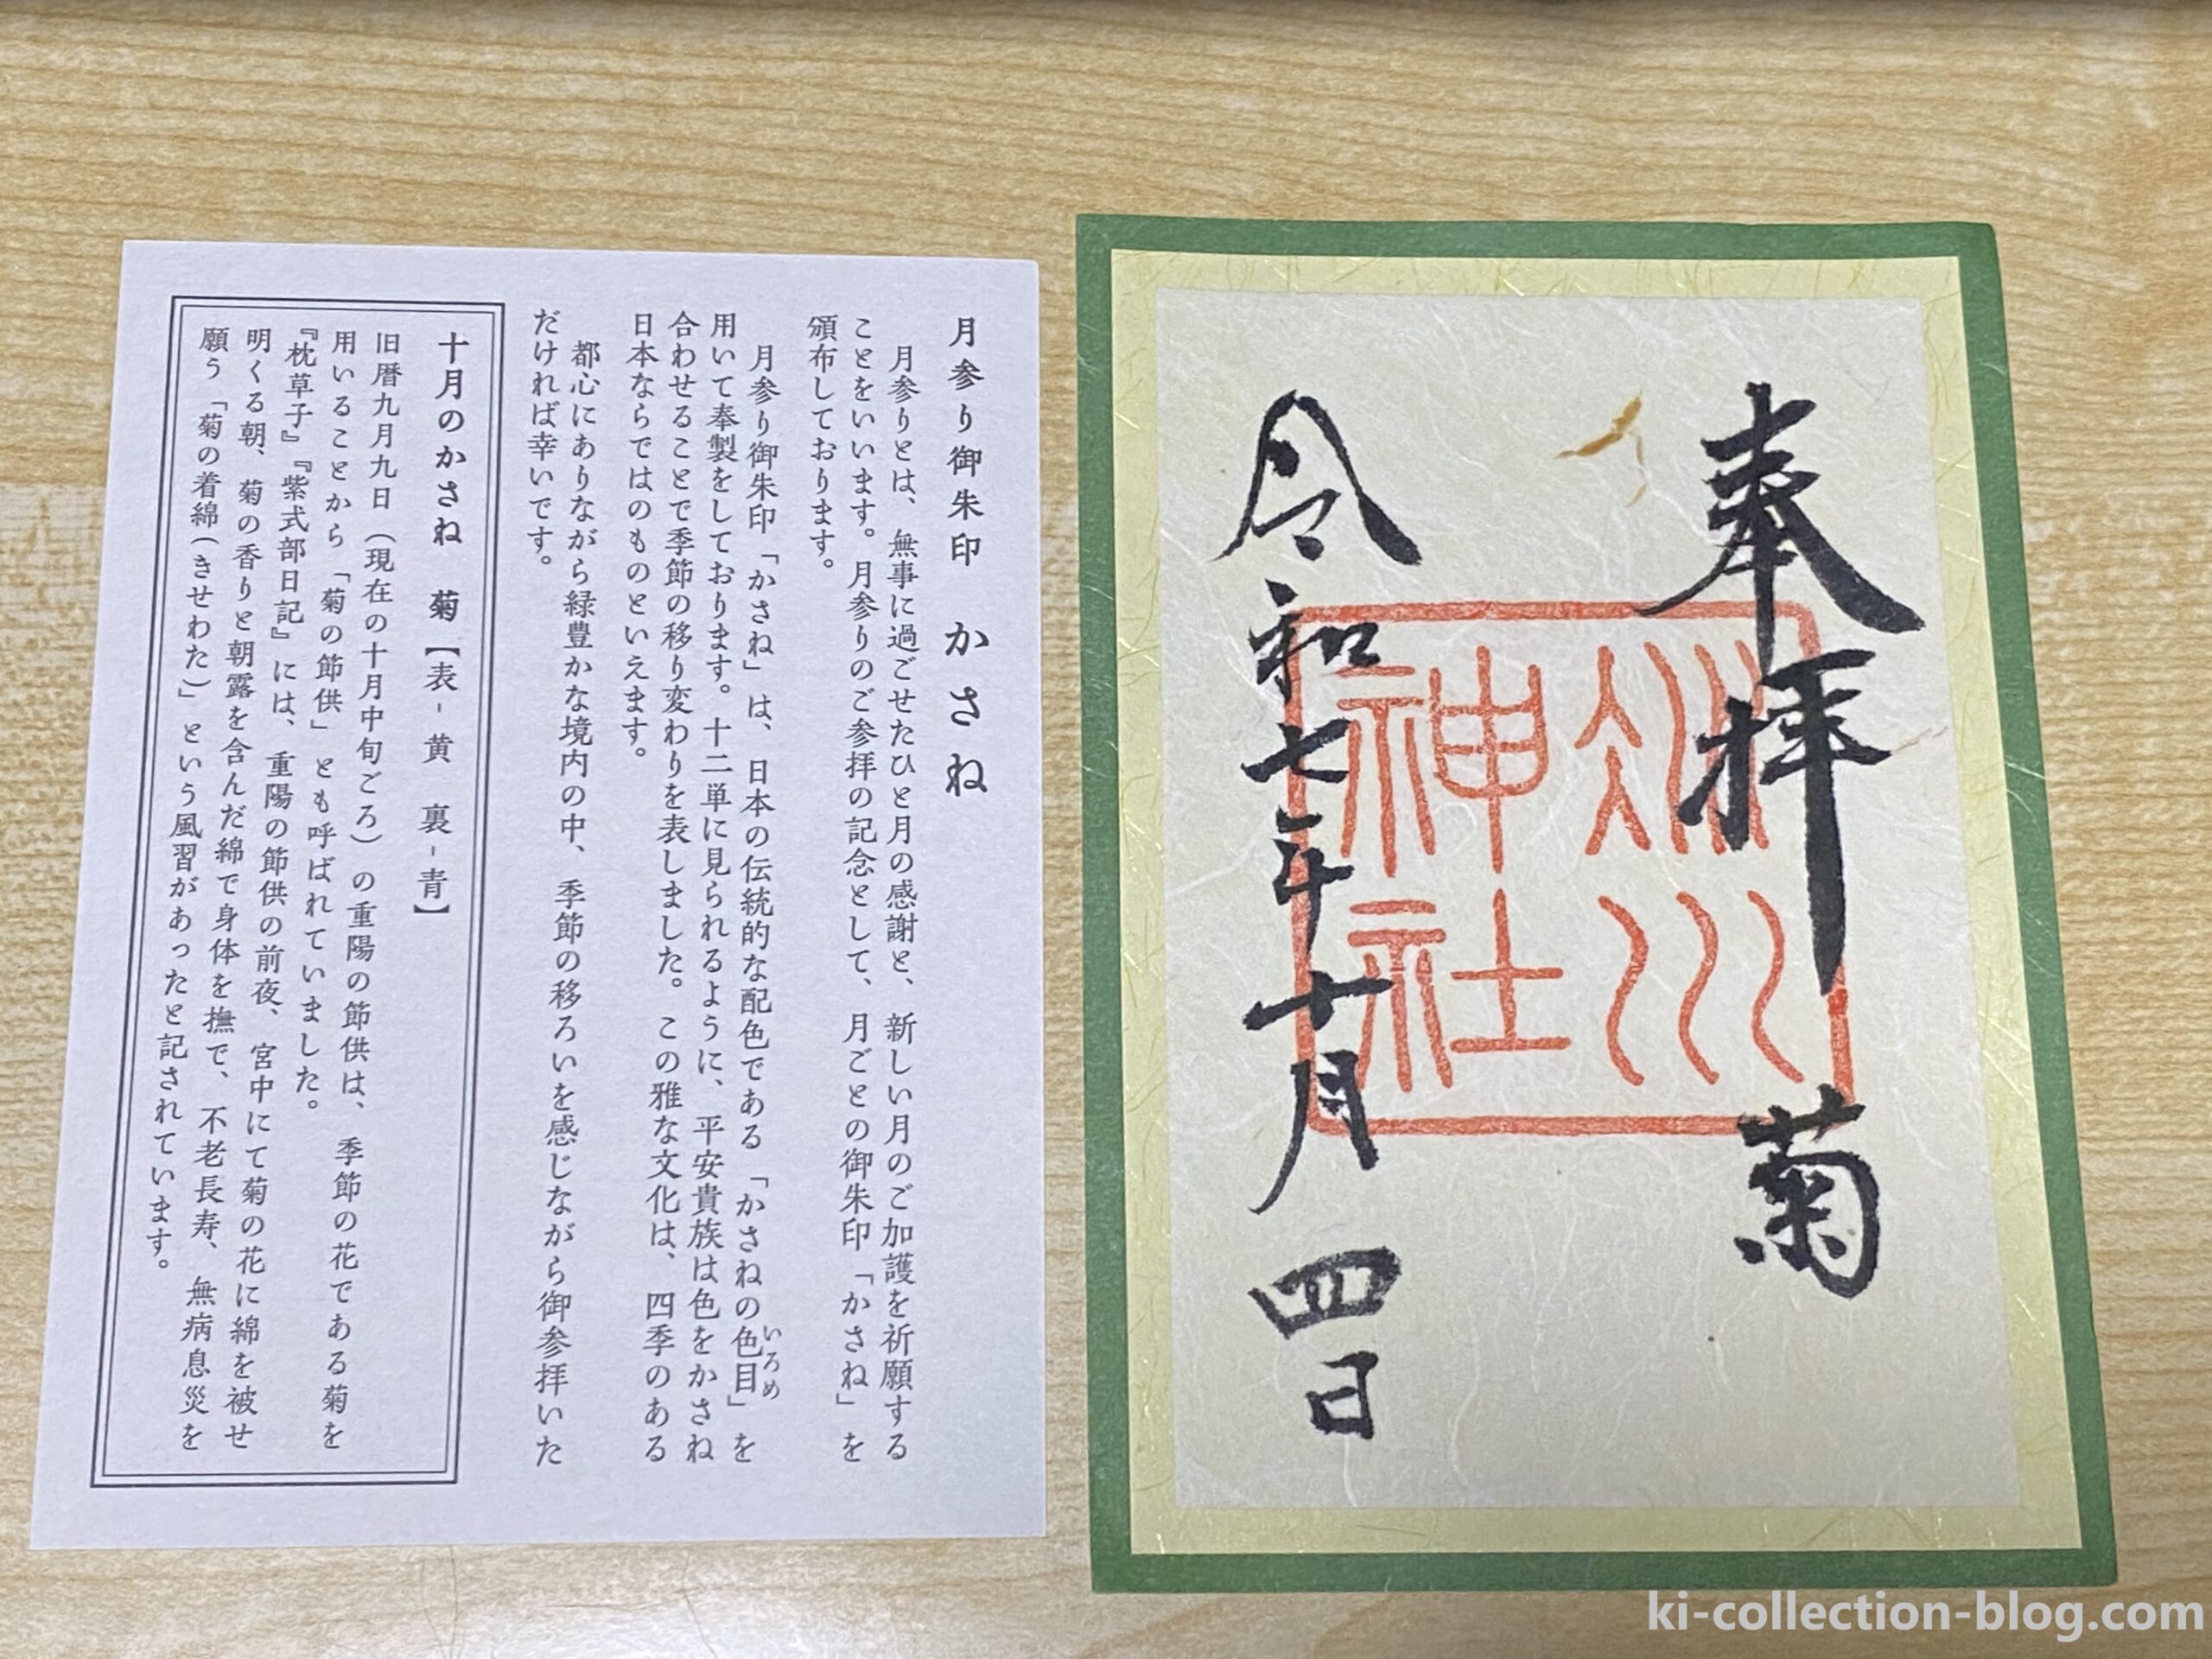 奉拝　菊
氷川
神社
令和七年十月四日
月参り御朱印　かさね
月参りとは、無事に過ごせたひと月の感謝と、新しい月のご加護を祈願する
ことをいいます。月参りのご参拝の記念として、月ごとの御朱印「かさね」を
頒布しております。
月参り御朱印「かさね」は、日本の伝統的な配色である「かさねの色目」を
いろめ
用いて奉製をしております。十二単に見られるように、平安貴族は色をかさね
合わせることで季節の移り変わりを表しました。この雅な文化は、四季のある
日本ならではのものといえます。
都心にありながら緑豊かな境内の中、季節の移ろいを感じながら御参拝いた
だければ幸いです。
十月のかさね　菊【表-黄　裏-青】
旧暦九月九日（現在の十月中旬ごろ）の重陽の節供は、季節の花である菊を
用いることから「菊の節供」とも呼ばれていました。
『枕草子』『紫式部日記』には、重陽の節供の前夜、宮中にて菊の花に綿を被せ
明くる朝、菊の香りと朝露を含んだ綿で身体を撫で、不老長寿、無病息災を
願う「菊の着綿（きせわた）」という風習があったと記されています。
ki-collection-blog.com